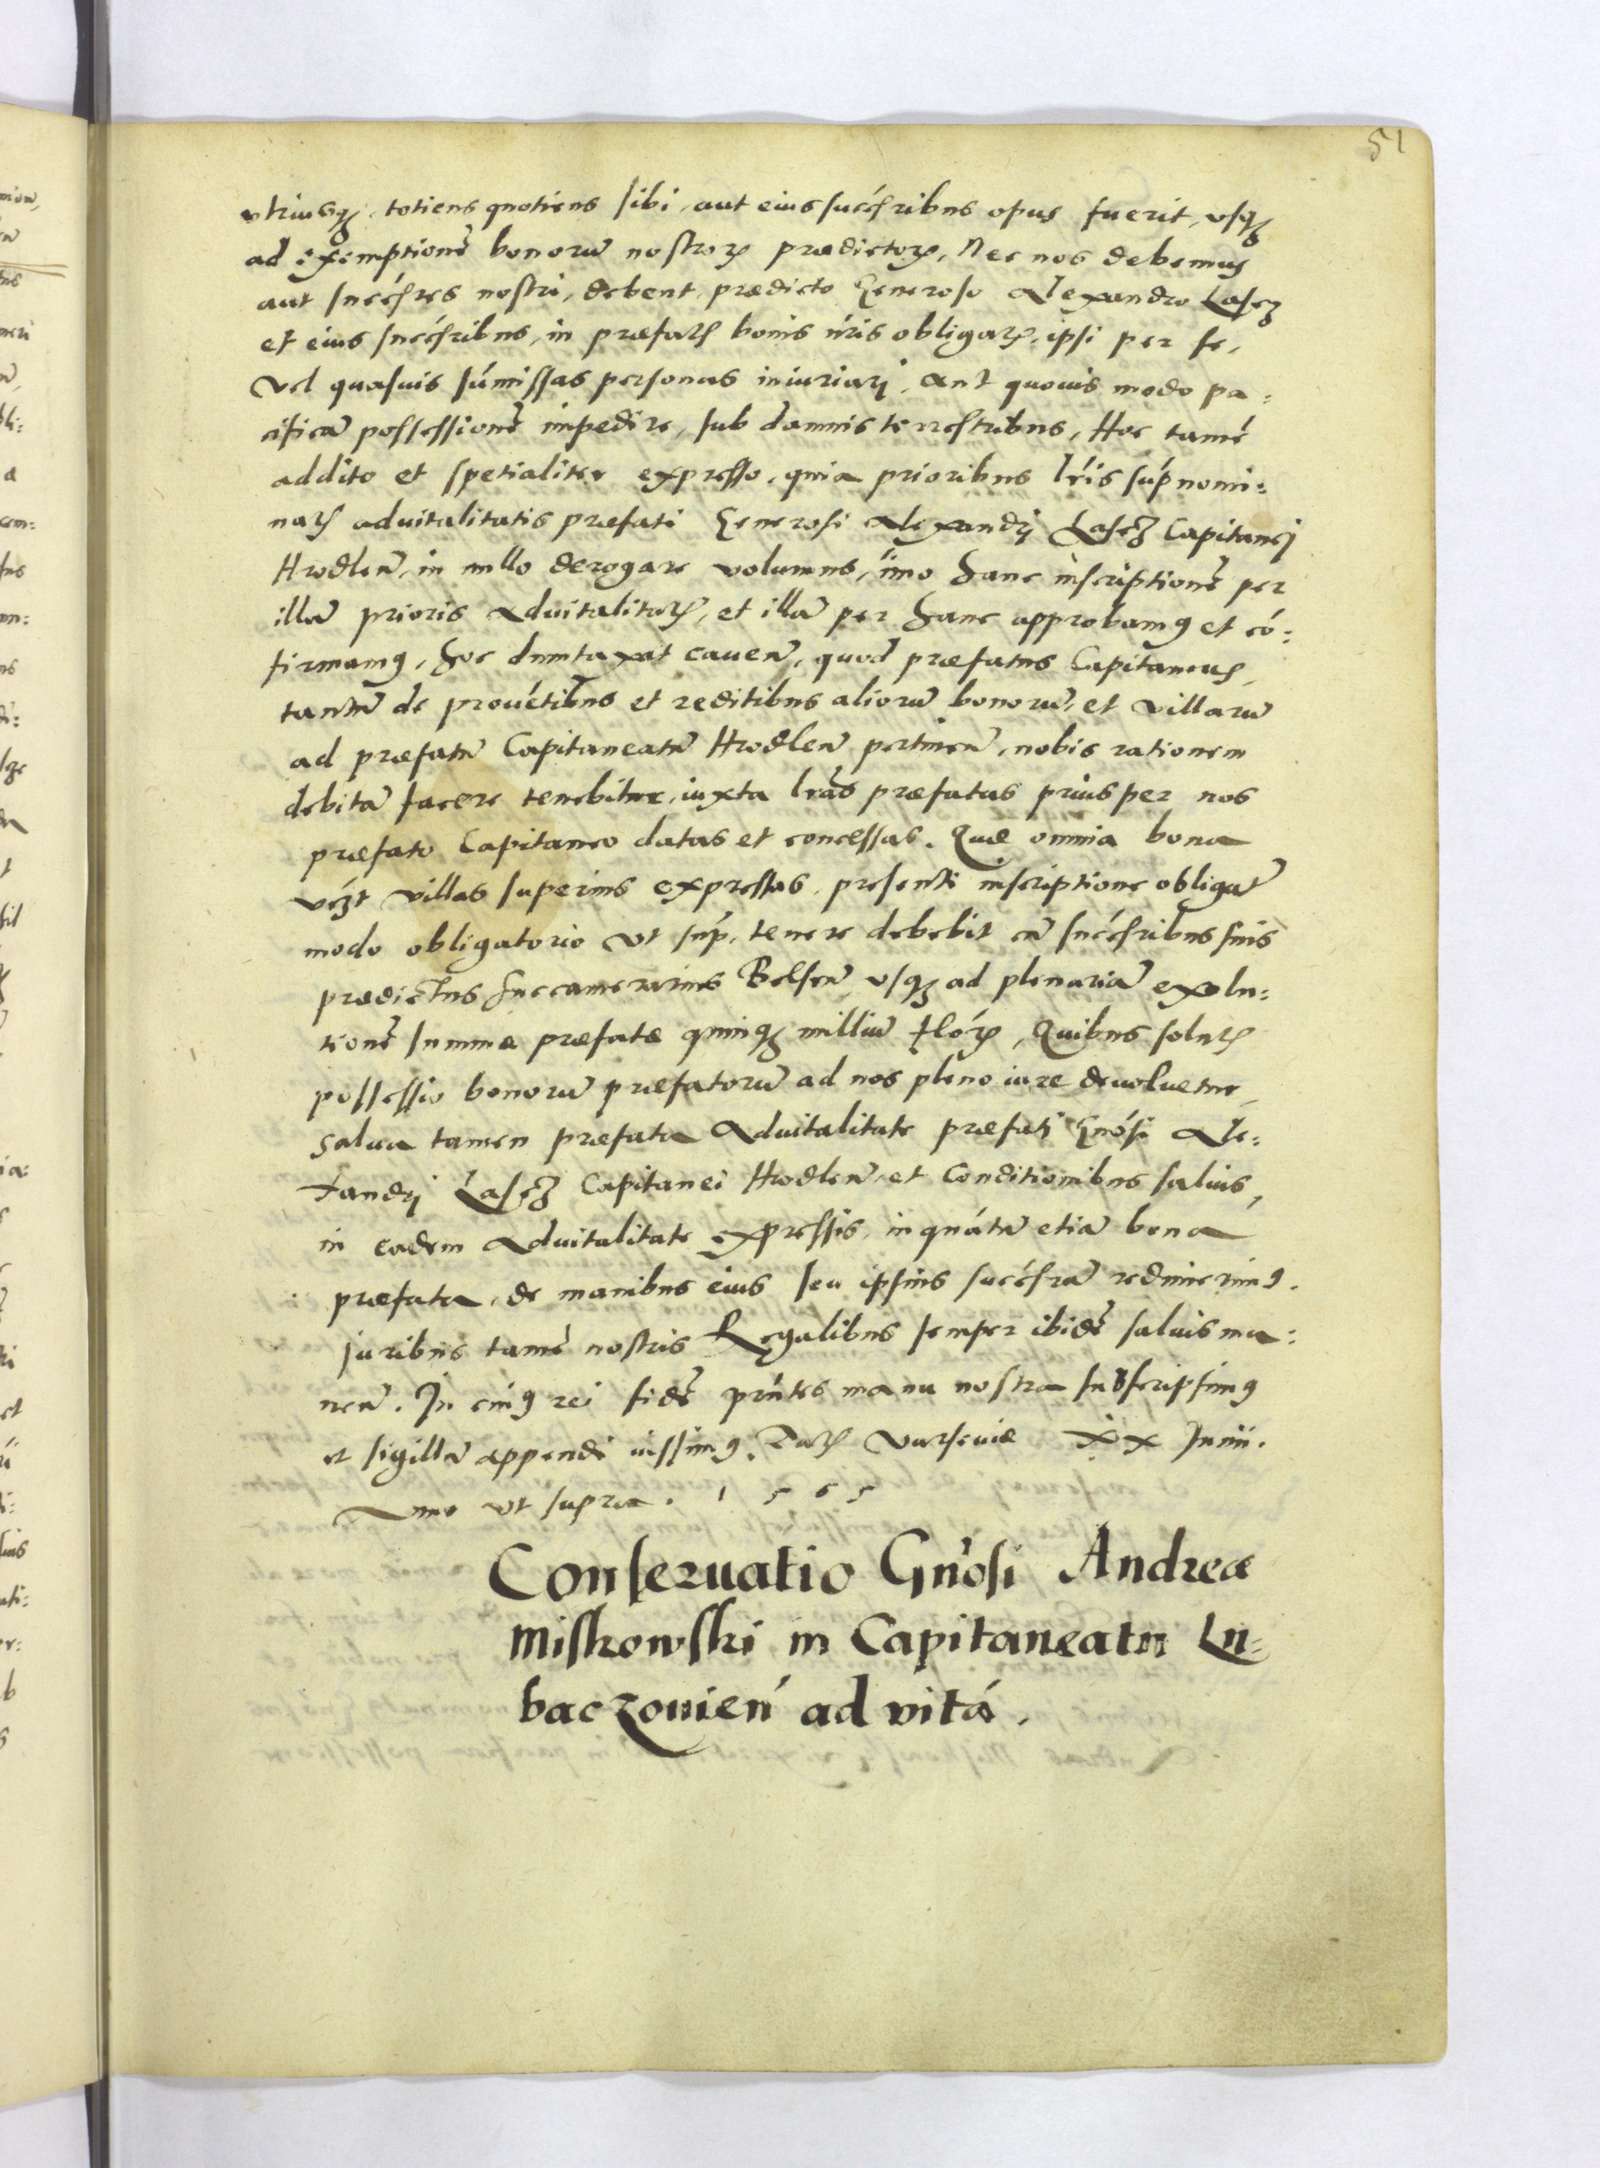 51
utriusq3, totiens quotiens sibi, aut eius succe͂ribus opus fuerit, usq3
ad exemptione͂ bonoru͂ nostror͂ prædictor͂, Nec nos debemus
aut succe͂res nostri, debent, prædicto Generoso Alexandro Lasc3
et eius succe͂ribus, in præfat͂ bonis n͂ris obligat͂, ipsi per se,
vel quasuis su͂missas personas iniuriari, aut quouis modo pa=
cifica͂ possessione͂ impedire, sub damnis terrestribus, Hoc tame͂
addito et spetialiter expresso, quia prioribus l͂ris sup͂nomi=
nat͂ aduitalitatis præfati Generosi Alexandrj Lasc3 Capitanej
Hrodlen͂, in nullo derogare volumus, imo hanc inscriptione͂ per
illa͂ prioris Aduitalitat͂, et illa͂ per hanc approbamus et co͂=
firmamus, hoc dumtaxat cauen͂, quod præfatus Capitaneus,
tantu͂ de proue͂tibus et reditibus alioru͂ bonoru͂, et villaru͂
ad præfatu͂ Capitaneatu͂ Hrodlen͂ pertinen͂, nobis rationem
debita͂ facere tenebitur, iuxta l͂ras præfatas prius per nos
præfato Capitaneo datas et concessas. Quæ omnia bona
vz͂t villas superius expressas, presenti inscriptione obligat͂
modo obligatorio ut sup͂, tenere debebit cu͂ succe͂ribus suis
prædictus Succamerarius Belsen͂, usq3 ad plenaria͂ exolu=
tione͂ summæ præfatæ quinq3 milliu͂ flor͂, Quibus solut͂
possessio bonoru͂ præfatoru͂ ad nos pleno iure deuoluetur,
salua tamen præfata Aduitalitate præfatj Gn͂osi Ale=
xandrj Lasc3 Capitanei Hrodlen͂, et Conditionibus saluis,
in eadem Aduitalitate expressis, in qua͂tu͂ etia͂ bona
præfata, de manibus eius seu ipsius succe͂ru͂ redimerimus.
Juribus tame͂ nostris Regalibus semper ibide͂ saluis ma=
nen͂. In cuius rei fide͂ pn͂tes manu nostra subscripsimus
et sigillu͂ appendi iussimus. Dat͂ Varsouiæ XX Junii.
Anno ut supra. 1565
Conseruatio Gn͂osi Andreæ
Miskowski in Capitaneatu Lu=
baczouien͂ ad vita͂.